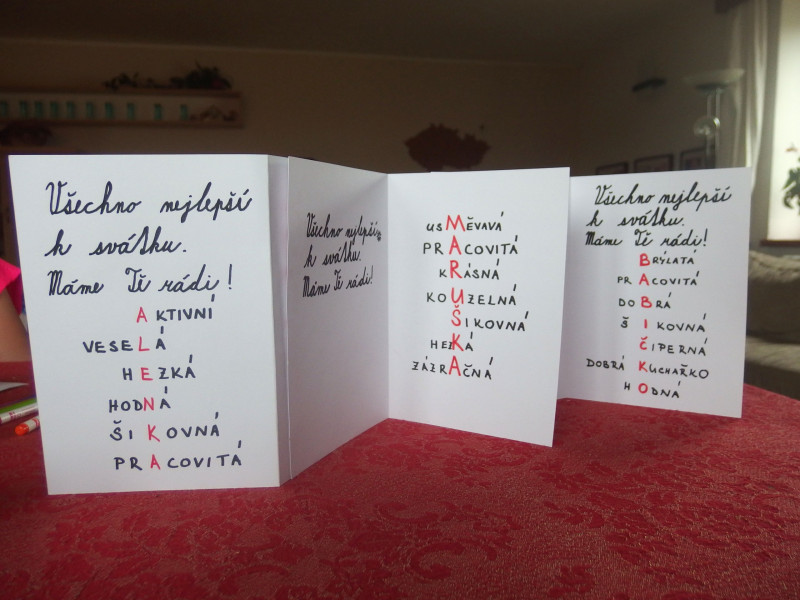 Všechno nejlepší
k svátku.
Máme Tě rádi!
AKTIVNÍ
VESELÁ
HEZKÁ
HODNÁ
ŠIKOVNÁ
PRACOVITÁ
Všechno nejlepší
k svátku.
Máme Tě rádi!
USMĚVAVÁ
PRACOVITÁ
KRÁSNÁ
KOUZELNÁ
ŠIKOVNÁ
HEZKÁ
ZÁZRAČNÁ
Všechno nejlepší
k svátku.
Máme Tě rádi!
BRÝLATÁ
PRACOVITÁ
DOBRÁ
ŠIKOVNÁ
ČIPERNÁ
DOBRÁ KUCHAŘKO
HODNÁ